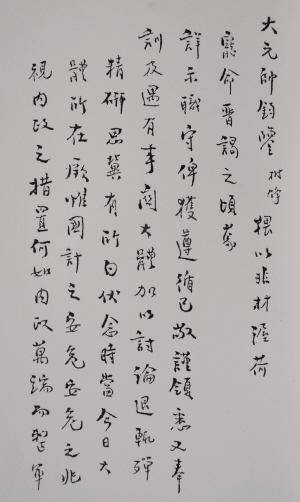 大元帥鈞鑒 樹錚 猥以非材 渥荷
寵命晉謁之頃蒙
詳示職守俾獲遵循已敬謹領悉又奉
訓及遇有事關大體加以討論退輒殫
精研思冀有所白伏念時當今日大
體所在厥惟國計之安危安危之兆
視內政之措置何如內政萬端而整軍